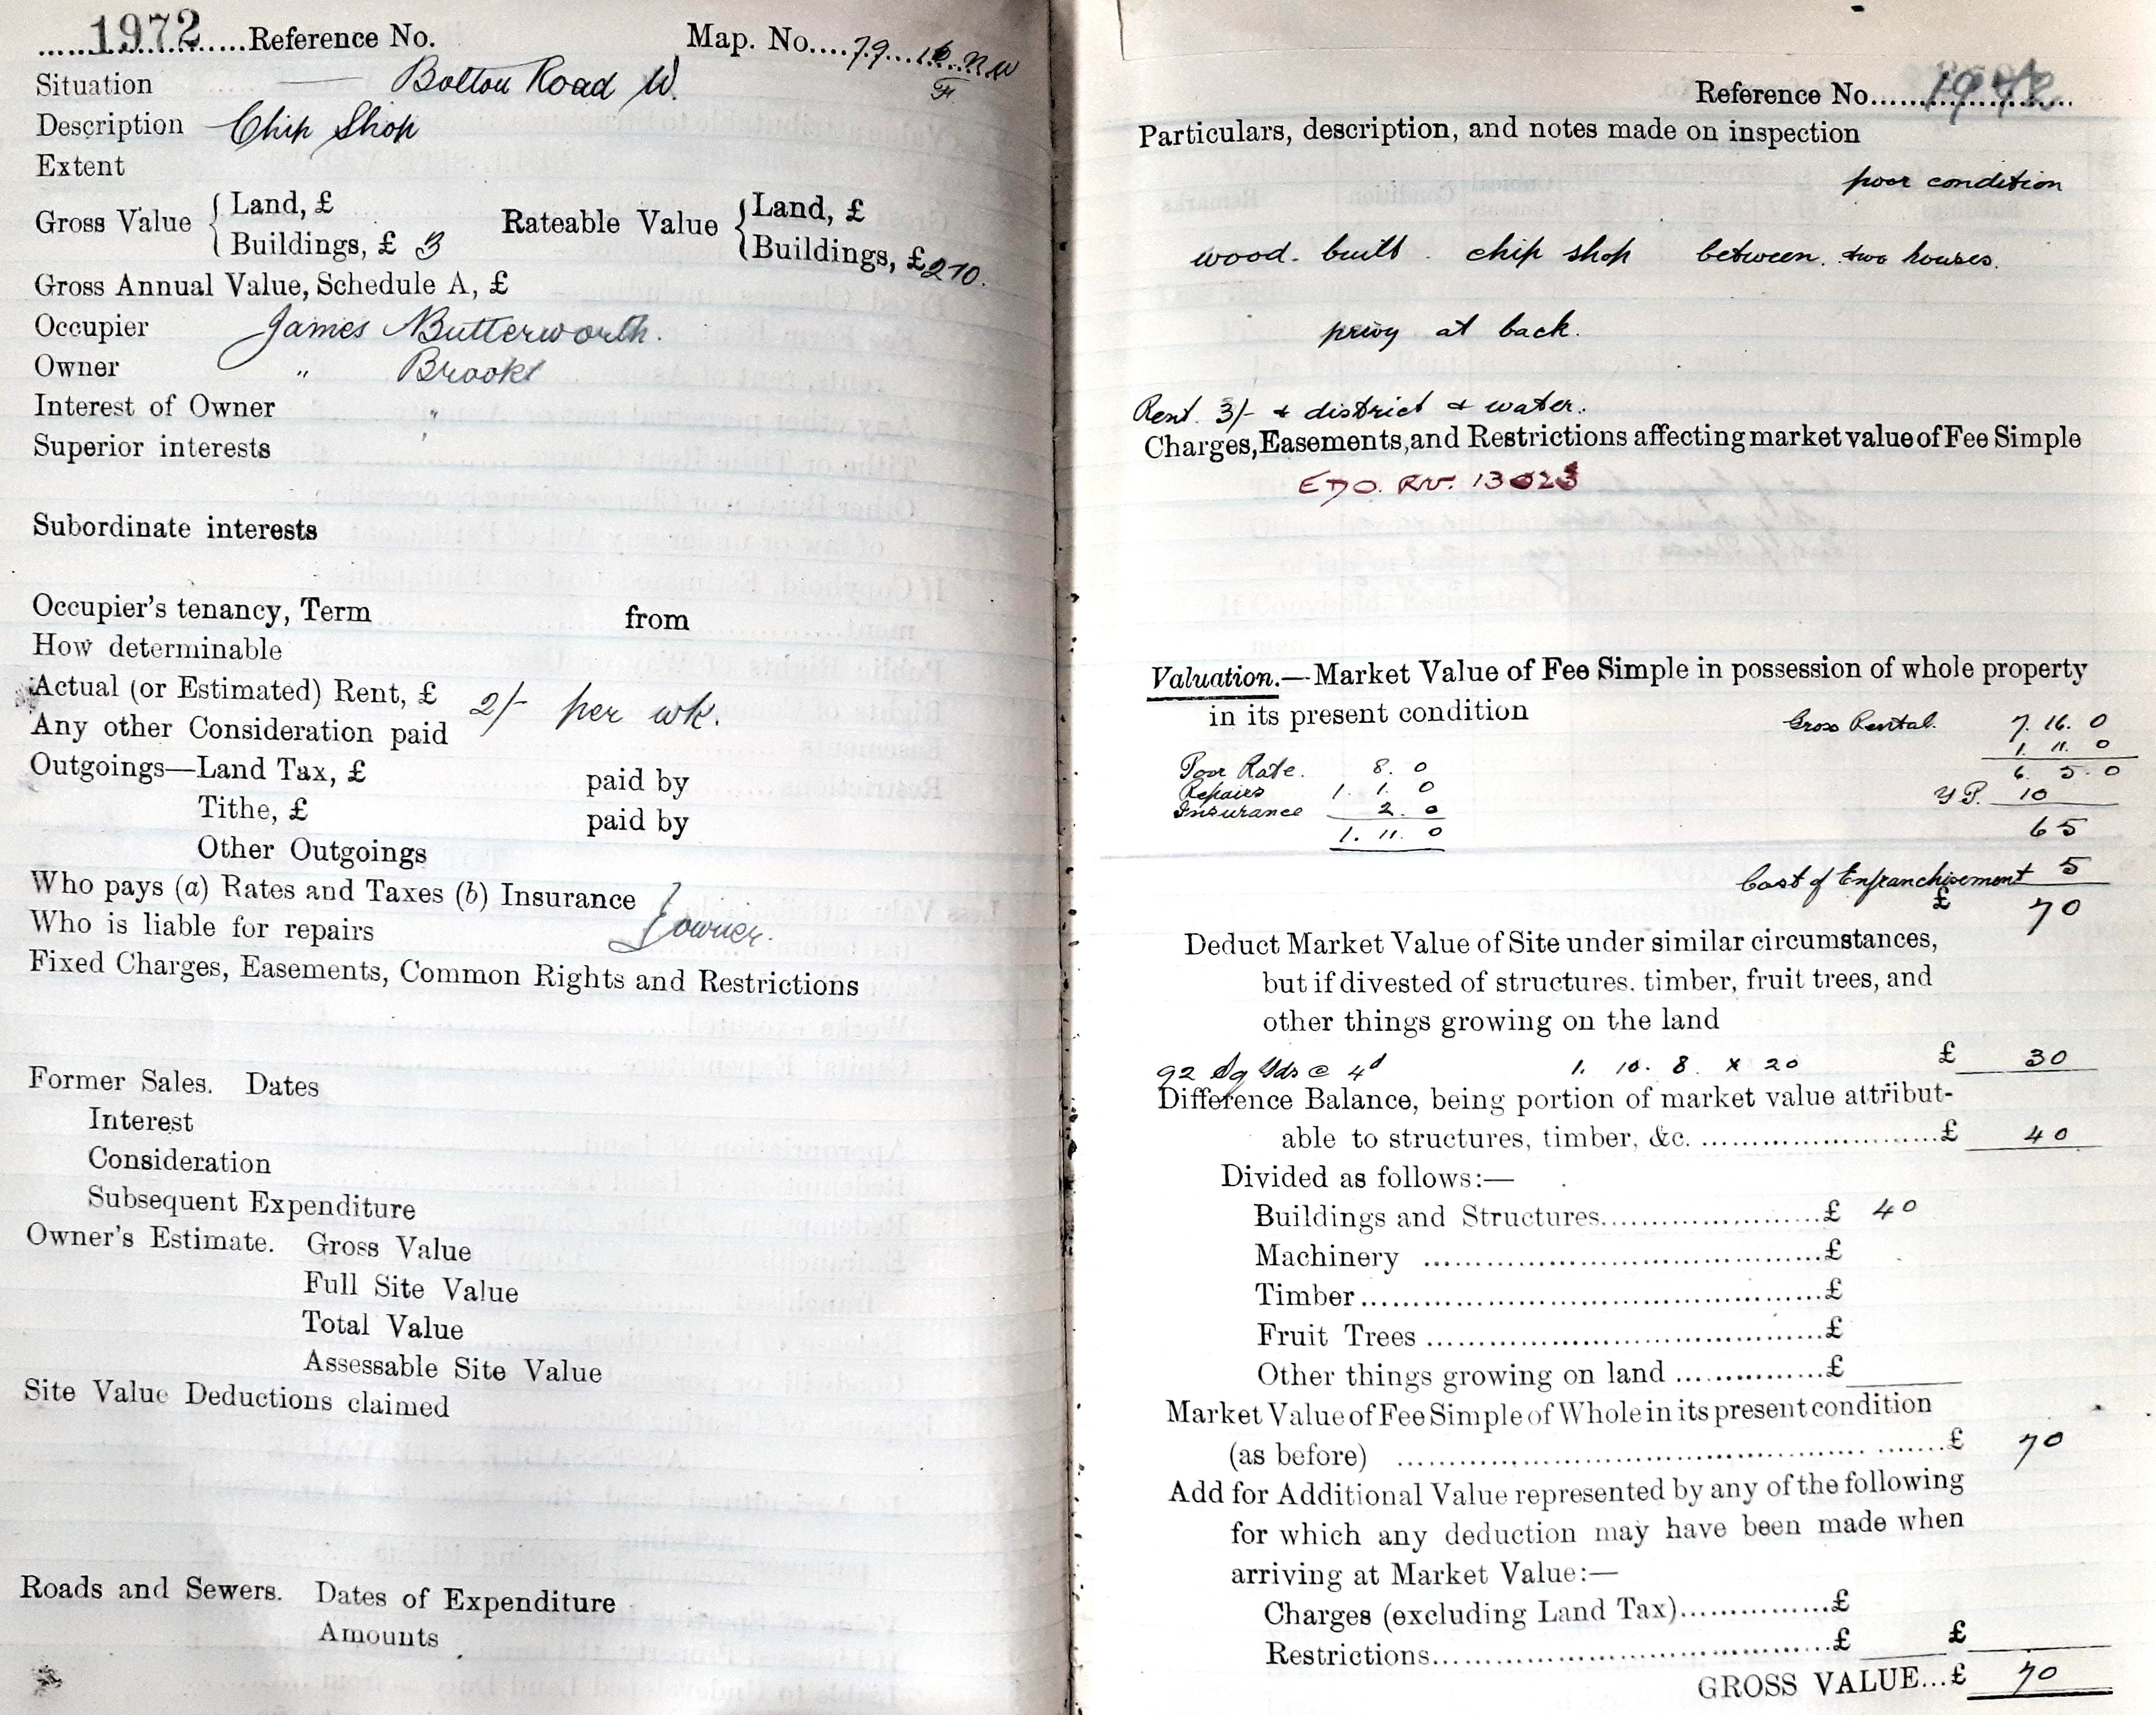 1972 Reference No. Map. No. 79
Situation Bolton Road W.
Description Chip Shop
Extent
Gross Value { Land, £ Rateable Value { Land, £
Buildings, £ 3 Buildings, £ 2 10.
Gross Annual Value, Schedule A, £
Occupier James Butterworth.
Owner " Brooks
Interest of Owner "
Superior interests
Subordinate interests
Occupier's tenancy, Term from
How determinable
Actual (or Estimated) Rent, £ 2/- per wk.
Any other Consideration paid
Outgoings—Land Tax, £ paid by
Tithe, £ paid by
Other Outgoings
Who pays (a) Rates and Taxes (b) Insurance } owner.
Who is liable for repairs
Fixed Charges, Easements, Common Rights and Restrictions
Former Sales. Dates
Interest
Consideration
Subsequent Expenditure
Owner's Estimate. Gross Value
Full Site Value
Total Value
Assessable Site Value
Site Value Deductions claimed
Roads and Sewers. Dates of Expenditure
Amounts
Reference No. 1972
Particulars, description, and notes made on inspection
poor condition
wood. built. chip shop between. two houses.
privy at back.
Rent. 3/- + district + water.
Charges, Easements, and Restrictions affecting market value of Fee Simple
Valuation.—Market Value of Fee Simple in possession of whole property
in its present condition
Gross Rental. 7. 16. 0
1. 11. 0
Poor Rate. 8. 0 6. 5. 0
Repairs 1. 1. 0 Y P. 10
Insurance 2. 0
1. 11. 0 65
Cost of Enfranchisement 5
£ 70
Deduct Market Value of Site under similar circumstances,
but if divested of structures. timber, fruit trees, and
other things growing on the land
92 Sq Yds @ 4d 1. 10. 8. x 20 £ 30
Difference Balance, being portion of market value attribut-
able to structures, timber, &c. £ 40
Divided as follows:—
Buildings and Structures £ 40
Machinery £
Timber £
Fruit Trees £
Other things growing on land £
Market Value of Fee Simple of Whole in its present condition
(as before) £ 70
Add for Additional Value represented by any of the following
for which any deduction may have been made when
arriving at Market Value:—
Charges (excluding Land Tax) £
Restrictions £ £
GROSS VALUE... £ 70